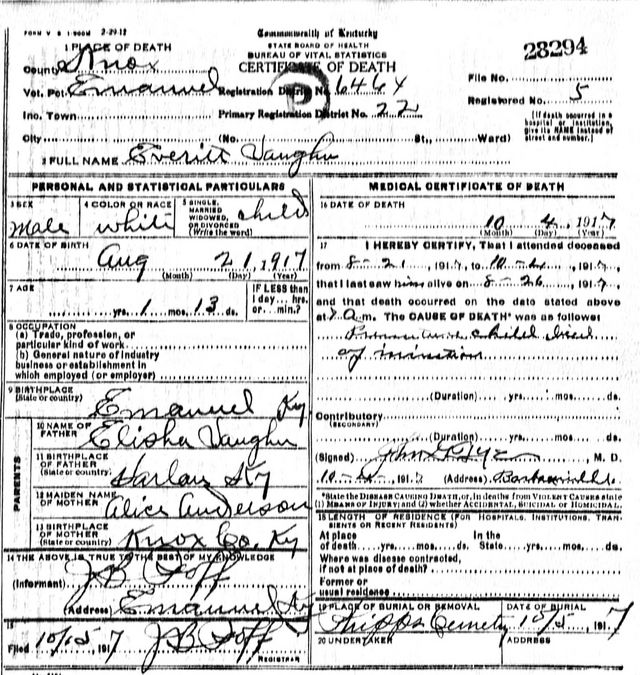 FORM V S 1-500M 2-29-12
Commonwealth of Kentucky
STATE BOARD OF HEALTH
BUREAU OF VITAL STATISTICS
CERTIFICATE OF DEATH
28294
1 PLACE OF DEATH
County Knox
Vot. Pct. Emanuel Registration District No. 6464
File No.
Inc. Town Primary Registration District No. 22
Registered No. 5
City (No. St., Ward)
[If death occurred in a hospital or institution, give its NAME instead of street and number.]
2 FULL NAME Everitt Vaughn
PERSONAL AND STATISTICAL PARTICULARS
3 SEX male
4 COLOR OR RACE white
5 SINGLE, MARRIED WIDOWED, OR DIVORCED (Write the word) child
6 DATE OF BIRTH
Aug 21, 1917
(Month) (Day) (Year)
7 AGE
yrs. 1 mos. 13 ds.
IF LESS than 1 day... hrs. or... min.?
8 OCCUPATION
(a) Trade, profession, or particular kind of work
(b) General nature of industry business or establishment in which employed (or employer)
9 BIRTHPLACE
(State or country) Emanuel Ky
PARENTS
10 NAME OF FATHER Elisha Vaughn
11 BIRTHPLACE OF FATHER (State or country) Harlan Ky
12 MAIDEN NAME OF MOTHER Alice Anderson
13 BIRTHPLACE OF MOTHER (State or country) Knox Co. Ky
14 THE ABOVE IS TRUE TO THE BEST OF MY KNOWLEDGE
(Informant) J B
(Address) Emanuel Ky
15
Filed 10/15 7, 191 J B
REGISTRAR
MEDICAL CERTIFICATE OF DEATH
16 DATE OF DEATH
10 4, 1917
(Month) (Day) (Year)
17 I HEREBY CERTIFY, That I attended deceased
from 8-21, 1917, to 10-4, 1917,
that I last saw him alive on 8-26, 1917,
and that death occurred on the date stated above
at a.m. The CAUSE OF DEATH* was as follows
child died
of
(Duration) yrs. mos. ds.
Contributory
(SECONDARY)
(Duration) yrs. mos. ds.
(Signed) John, M. D.
10-4, 1917 (Address) Barbourville
*State the DISEASE CAUSING DEATH, or, in deaths from VIOLENT CAUSES state (1) MEANS OF INJURY; and (2) whether ACCIDENTAL, SUICIDAL or HOMICIDAL.
18 LENGTH OF RESIDENCE (FOR HOSPITALS, INSTITUTIONS, TRANSIENTS OR RECENT RESIDENTS)
At place of death yrs. mos. ds. In the State yrs. mos. ds.
Where was disease contracted, if not at place of death?
Former or usual residence
19 PLACE OF BURIAL OR REMOVAL
DATE OF BURIAL
10/5, 1917
20 UNDERTAKER
ADDRESS